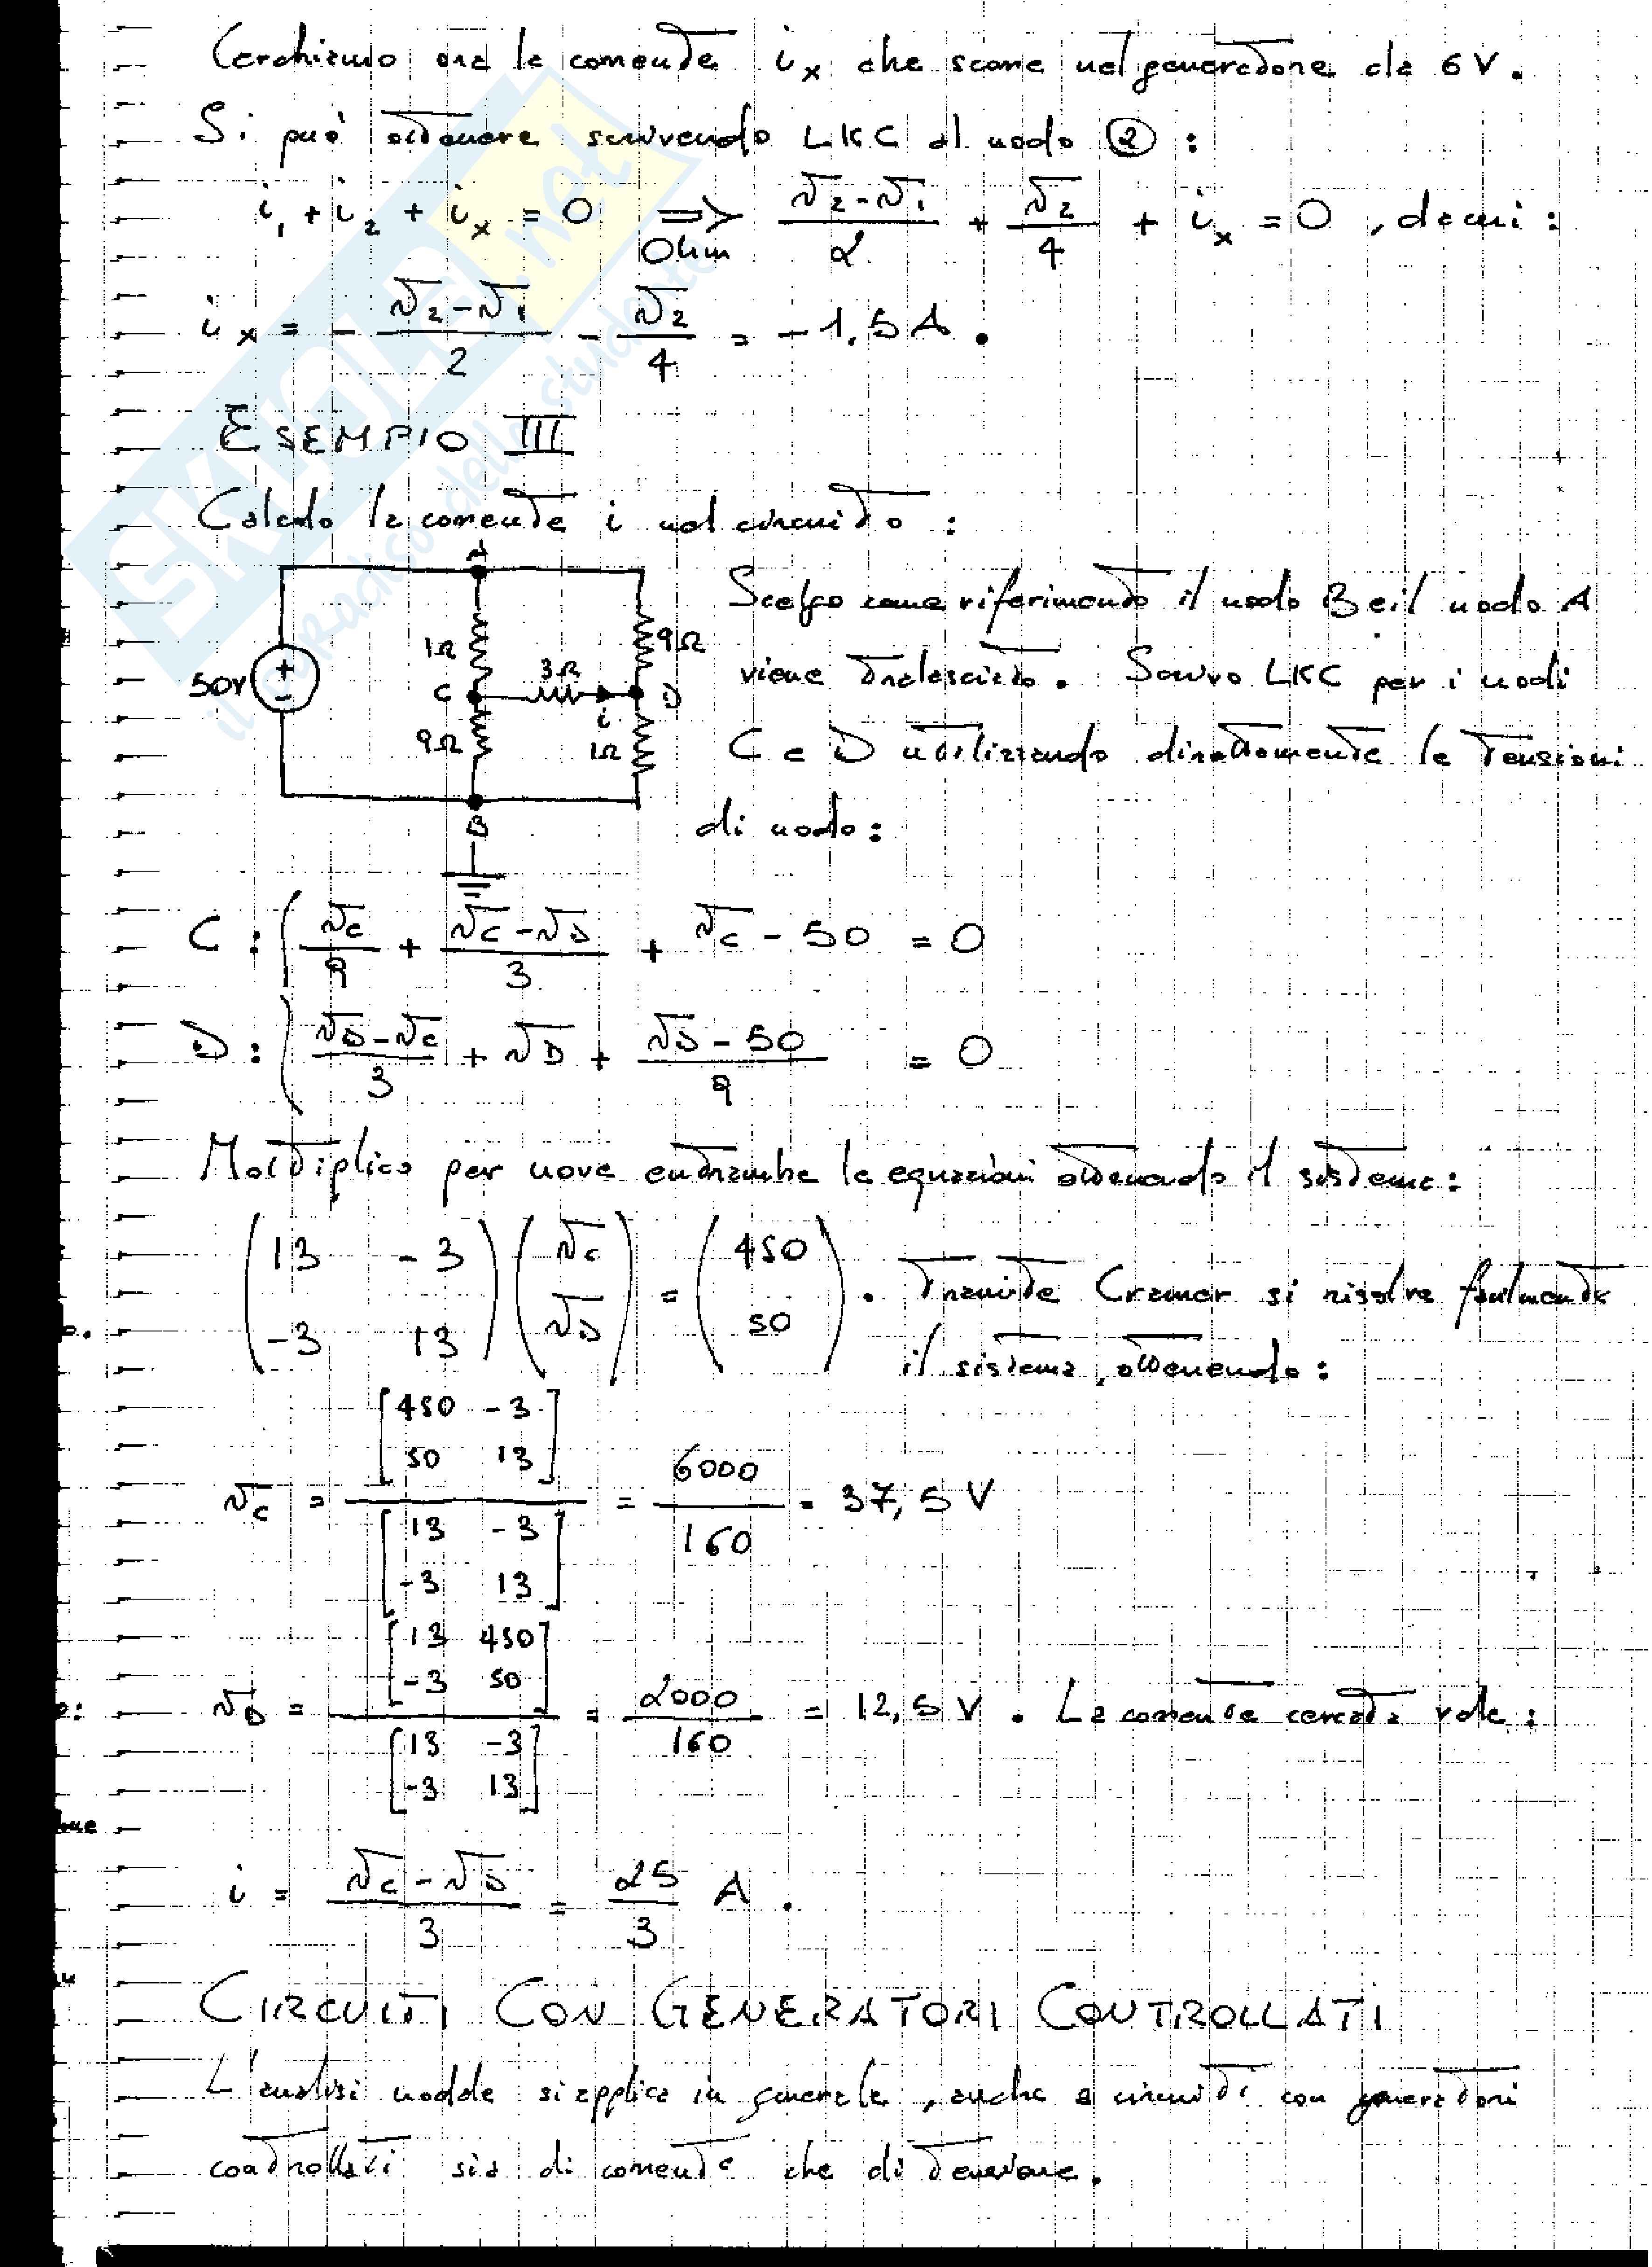 Cerchiamo ora la corrente i_x che scorre nel generatore da 6 V.
Si può ottenere scrivendo LKC al nodo ②:
i_1 + i_2 + i_x = 0 ⟹ (Ohm) (v_2 - v_1)/2 + v_2/4 + i_x = 0, da cui:
i_x = - (v_2 - v_1)/2 - v_2/4 = -1.5 A.
ESEMPIO III
Calcolo la corrente i nel circuito:
A
50V + -
1Ω
9Ω
C
3Ω
D
i
9Ω
1Ω
B
Scelgo come riferimento il nodo B e il nodo A
viene tralasciato. Scrivo LKC per i nodi
C e D utilizzando direttamente le tensioni
di nodo:
C: v_C/9 + (v_C - v_D)/3 + v_C - 50 = 0
D: (v_D - v_C)/3 + v_D + (v_D - 50)/9 = 0
Moltiplico per nove entrambe le equazioni ottenendo il sistema:
(13 -3; -3 13) (v_C; v_D) = (450; 50). Tramite Cramer si risolve facilmente
il sistema, ottenendo:
v_C = [450 -3; 50 13] / [13 -3; -3 13] = 6000/160 = 37,5 V
v_D = [13 450; -3 50] / [13 -3; -3 13] = 2000/160 = 12,5 V. La corrente cercata vale:
i = (v_C - v_D)/3 = 25/3 A.
CIRCUITI CON GENERATORI CONTROLLATI
L'analisi nodale si applica in generale, anche a circuiti con generatori
controllati sia di corrente che di tensione.
SKUOLA.net
il paradiso dello studente